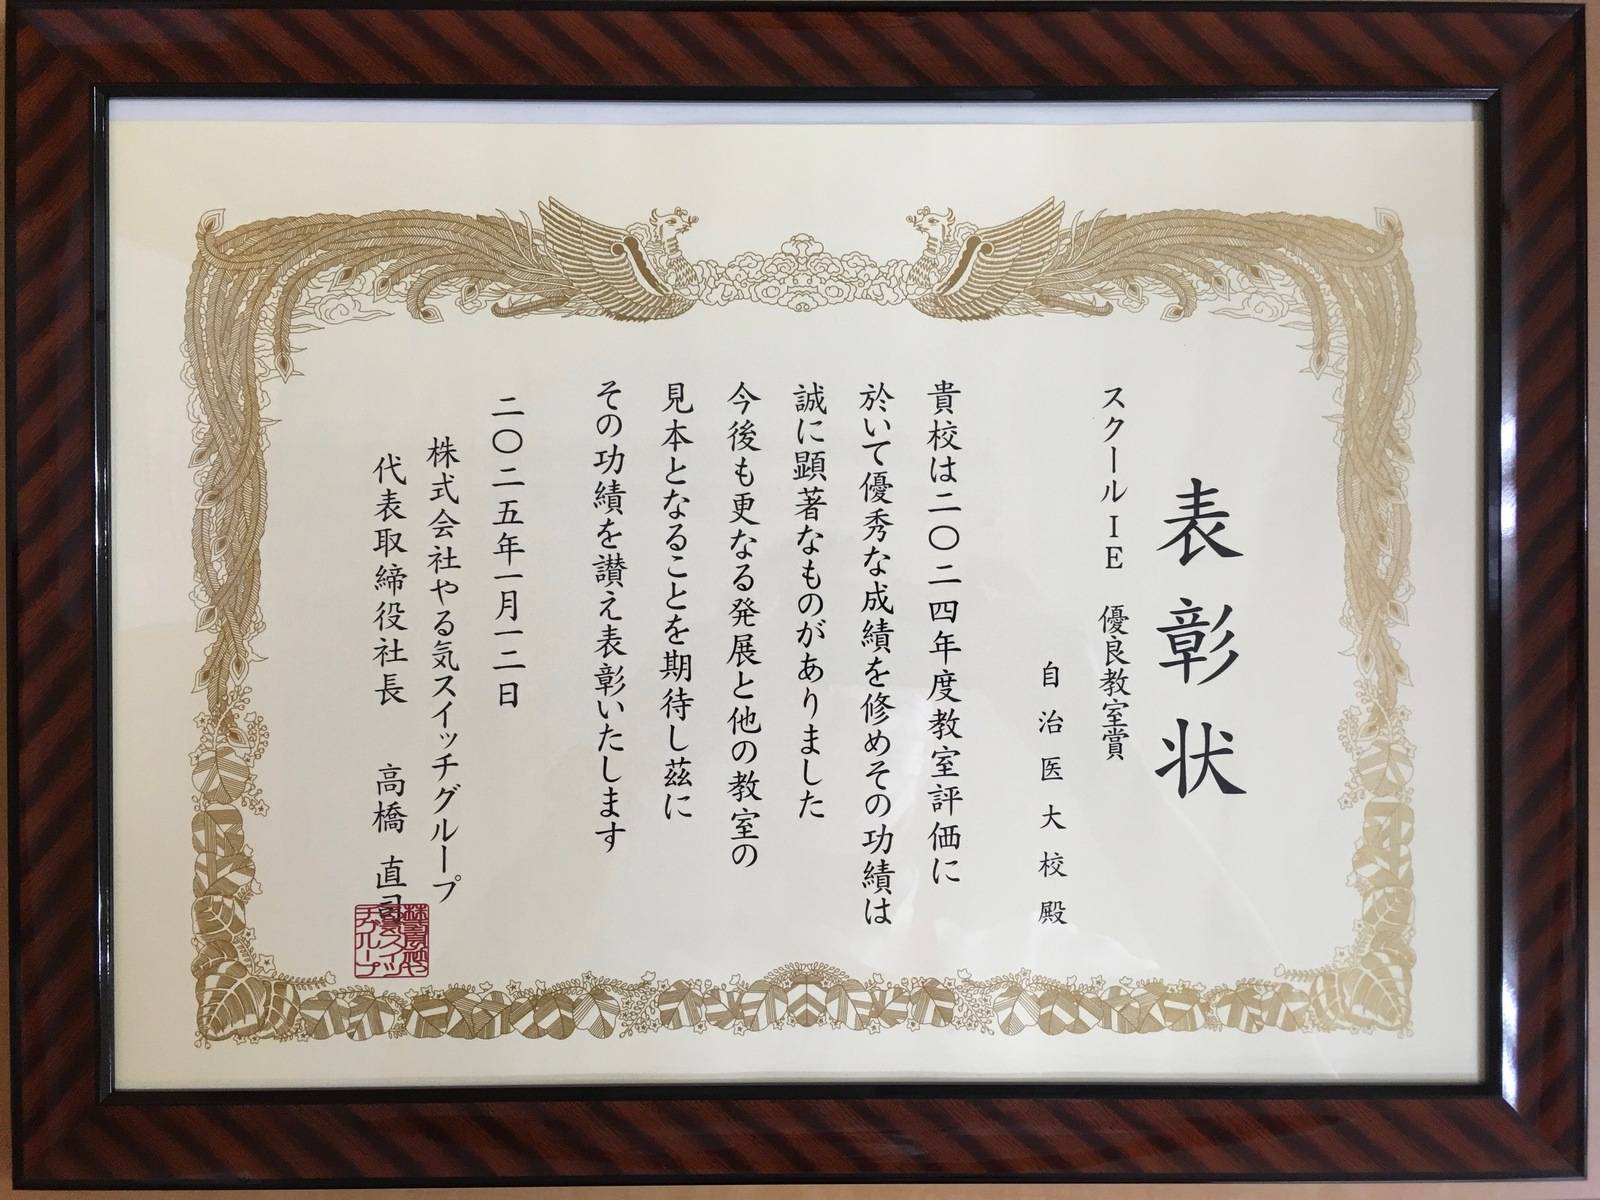 表彰状
スクールIE 優良教室賞
自治医大校殿
貴校は二〇二四年度教室評価に
於いて優秀な成績を修めその功績は
誠に顕著なものがありました
今後も更なる発展と他の教室の
見本となることを期待し茲に
その功績を讃え表彰いたします
二〇二五年一月一二日
株式会社やる気スイッチグループ
代表取締役社長 高橋 直司